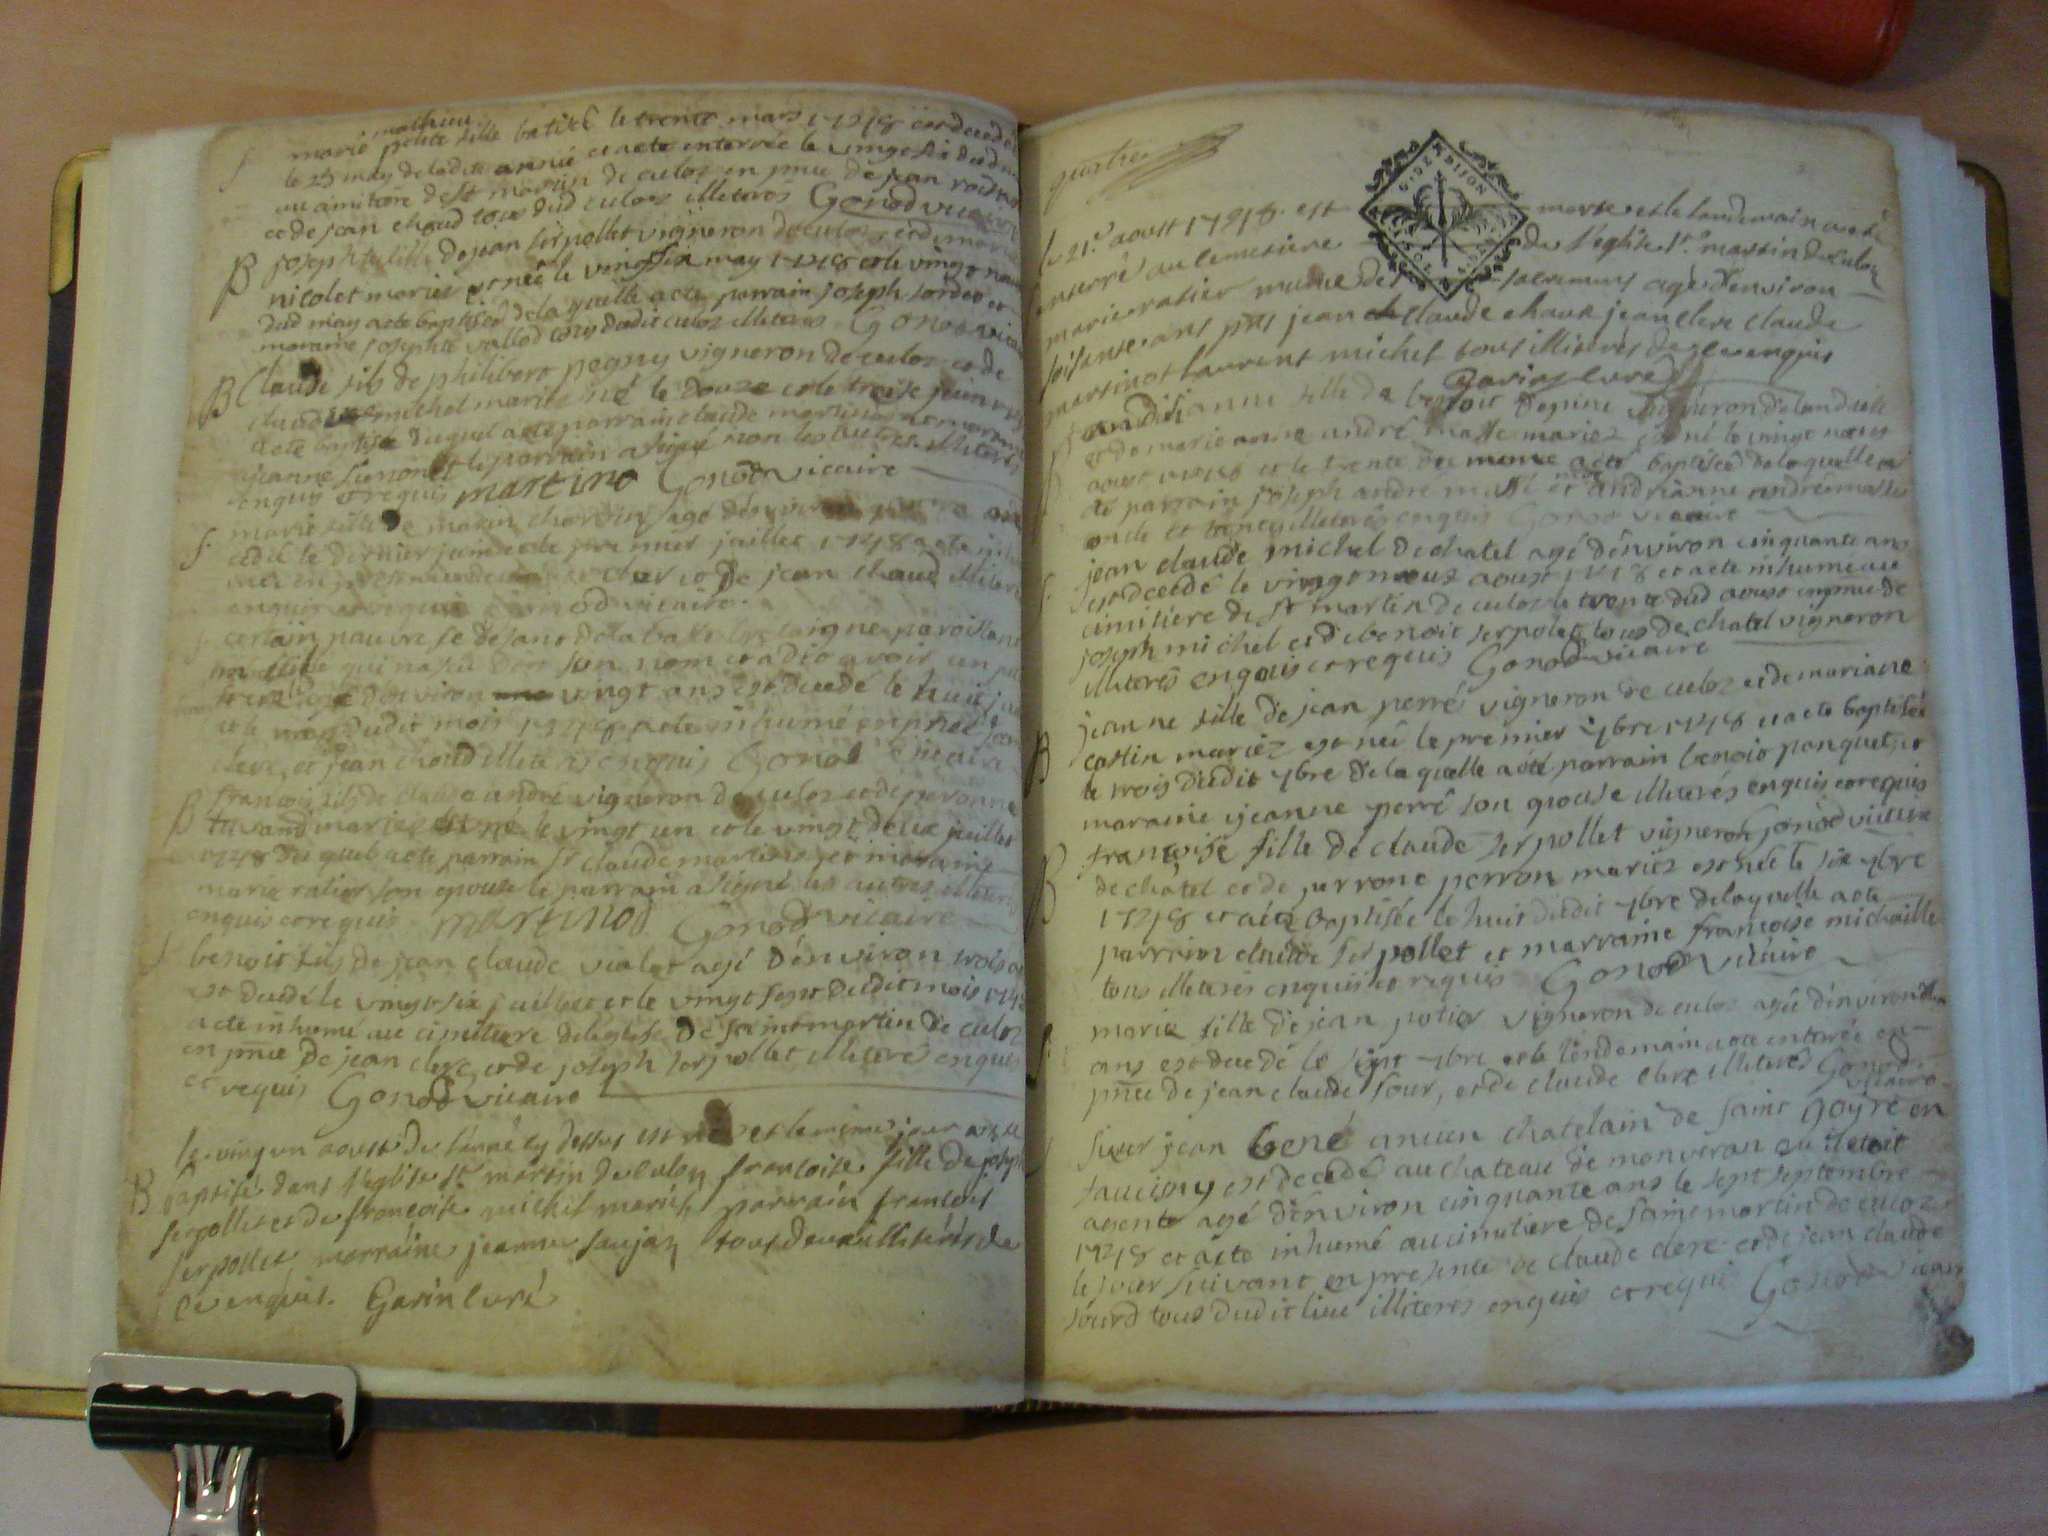 mathieu
marie petite fille batisé le trente mars 1748 est decedé
le 25 may de ladite année et a eté enterrée le vingt six dud may
au cimitiere de St martin de culoz en pnce de jean
et de jean chaud tous dud culoz illiterés Gonod vicaire
B josephte fille de jean serpollet vigneron de culoz et de marie
nicolet mariez est née le vingt six may 1748 et le vingt
dud may a eté baptisée de laquelle a eté parrain joseph et
maraine josephte vallod tous dudit culoz illiteres Gonod vicaire
B Claude fils de philibert pegny vigneron de culoz et de
claudine michel mariez né le douze et le treize juin
a eté baptisé duquel a eté parrain claude martinod et maraine
jeanne simonet le parrain a signé non les autres illiterés
enquis et requis martinod Gonod vicaire
S. marie fille de marin agé d'environ
cedé le dernier juin et le premier juillet 1748 a eté
et de jean chaud
enquis et requis Gonod vicaire.
certain pauvre se disant de la
qui n'a pu dire son nom et a dit avoir un
frere agé d'environ vingt ans est decedé le huit
et le dudit mois 1748 a eté inhumé en pnce de jean
clerc et jean chaud illiterés enquis Gonod vicaire
B françois fils de claude andré vigneron de culoz et de peronne
mariez est né le vingt un et le vingt deux juillet
1748 duquel a eté parrain Sr claude martinod et maraine
marie ratier son epouse le parrain a signé les autres illiterés
enquis et requis. martinod Gonod vicaire
S benoit fils de jean claude violet agé d'environ trois
est decedé le vingt six juillet et le vingt sept dudit mois 1748
a eté inhumé au cimitiere de l'eglise de saint martin de culoz
en pnce de jean clerc et de joseph serpollet illiteré enquis
et requis Gonod vicaire
le vingt un aoust de l'année cy dessus est née et le mème jour a esté
B baptisé dans l'eglise St martin de culoz francoise fille de joseph
serpollet et de francoise michel mariés parrain francois
serpollet marraine jeanne tous deux illiterés de
ce enquis. Garin curé
quatre
G. D. DE DIJON
le 21e aoust 1748 est morte et le landemain a eté
enterré au cemetiere de l'eglise St martin de culoz
marie ratier munie des sacremens agé d'environ
soisente ans pnts jean claude chaux jean clerc claude
martinot laurent michel tous illiterés de ce enquis
Garin curé
andrianne fille de benoit depine vigneron de landaise
et de marie anne andré masse mariez est né le vingt neuf
aout 1748 et le trente du meme a eté baptisée de laquelle a
eté parrain joseph andre masse et andrianne andré masse
oncle et tante illiterés enquis Gonod vicaire
S. jean claude michel de chatel agé d'environ cinquante ans
est decedé le vingt neuf aoust 1748 et a eté inhumé au
cimitiere de St martin de culoz le trente dud aoust en pnce de
joseph michel et de benoit serpolet tous de chatel vigneron
illiterés enquis et requis Gonod vicaire
B jeanne fille de jean perré vigneron de culoz et de mariane
costin mariez est née le premier 7bre 1748 et a eté baptisée
le trois dudit 7bre de laquelle a eté parrain benoit ponquet et
maraine jeanne perré son epouse illiterés enquis et requis
B françoise fille de claude serpollet vigneron Gonod vicaire
de chatel et de perrone perron mariez est née le six 7bre
1748 et a eté baptisée le huit dudit 7bre de laquelle a eté
parrain claude serpollet et marraine françoise michaille
tous illiterés enquis et requis Gonod vicaire
S marie fille de jean potier vigneron de culoz agée d'environ
ans est decedé le sept 7bre et le lendemain a eté enterée en
pnce de jean claude sour, et de claude clerc illiterés Gonod
vicaire
S sieur jean bené ancien chatelain de saint goyre en
faucigny est decedé au chateau de monveran ou il etoit
agente agé d'environ cinquante ans le sept septembre
1748 et a eté inhumé au cimitiere de saint martin de culoz
le jour suivant en presence de claude clerc et de jean claude
sourd tous dudit lieu illiteres enquis et requis Gonod vicaire